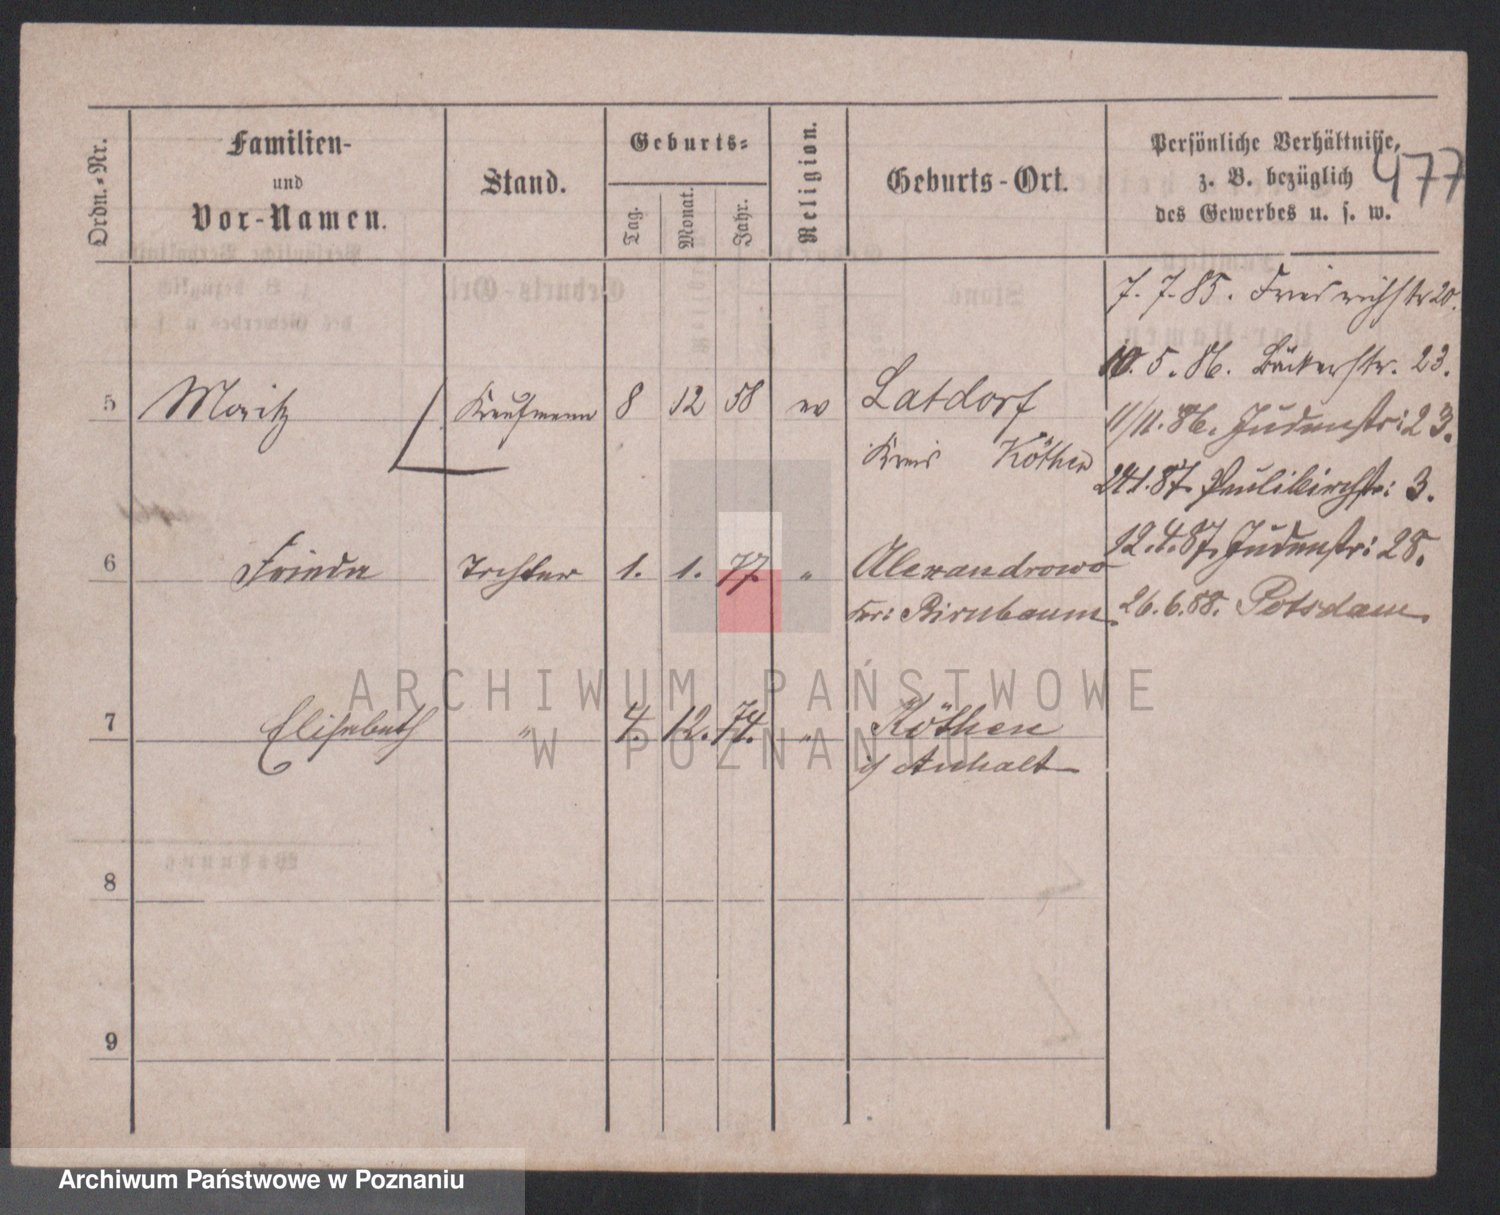 Ordn.-Nr.
Familien-
und
Vor-Namen.
Stand.
Geburts-
Tag.
Monat.
Jahr.
Religion.
Geburts-Ort.
Persönliche Verhältnisse,
z. B. bezüglich
des Gewerbes u. s. w.
477
7. 7. 85. Friedrichstr 20.
10. 5. 86. Bäckerstr. 23.
11/11. 86. Judenstr: 23.
24.1.87. Paulikirchstr: 3.
12.4.87. Judenstr: 28.
26.6.88. Potsdam.
5 Moritz Kaufmann 8 12 58 ev Latdorf
Kreis Köthen
6 Frieda Tochter 1. 1. 77. " Alexandrowo
Kr: Birnbaum.
7 Elisabeth " 4. 12. 74. " Köthen
i/ Anhalt
8
9
ARCHIWUM PAŃSTWOWE
W POZNANIU
Archiwum Państwowe w Poznaniu